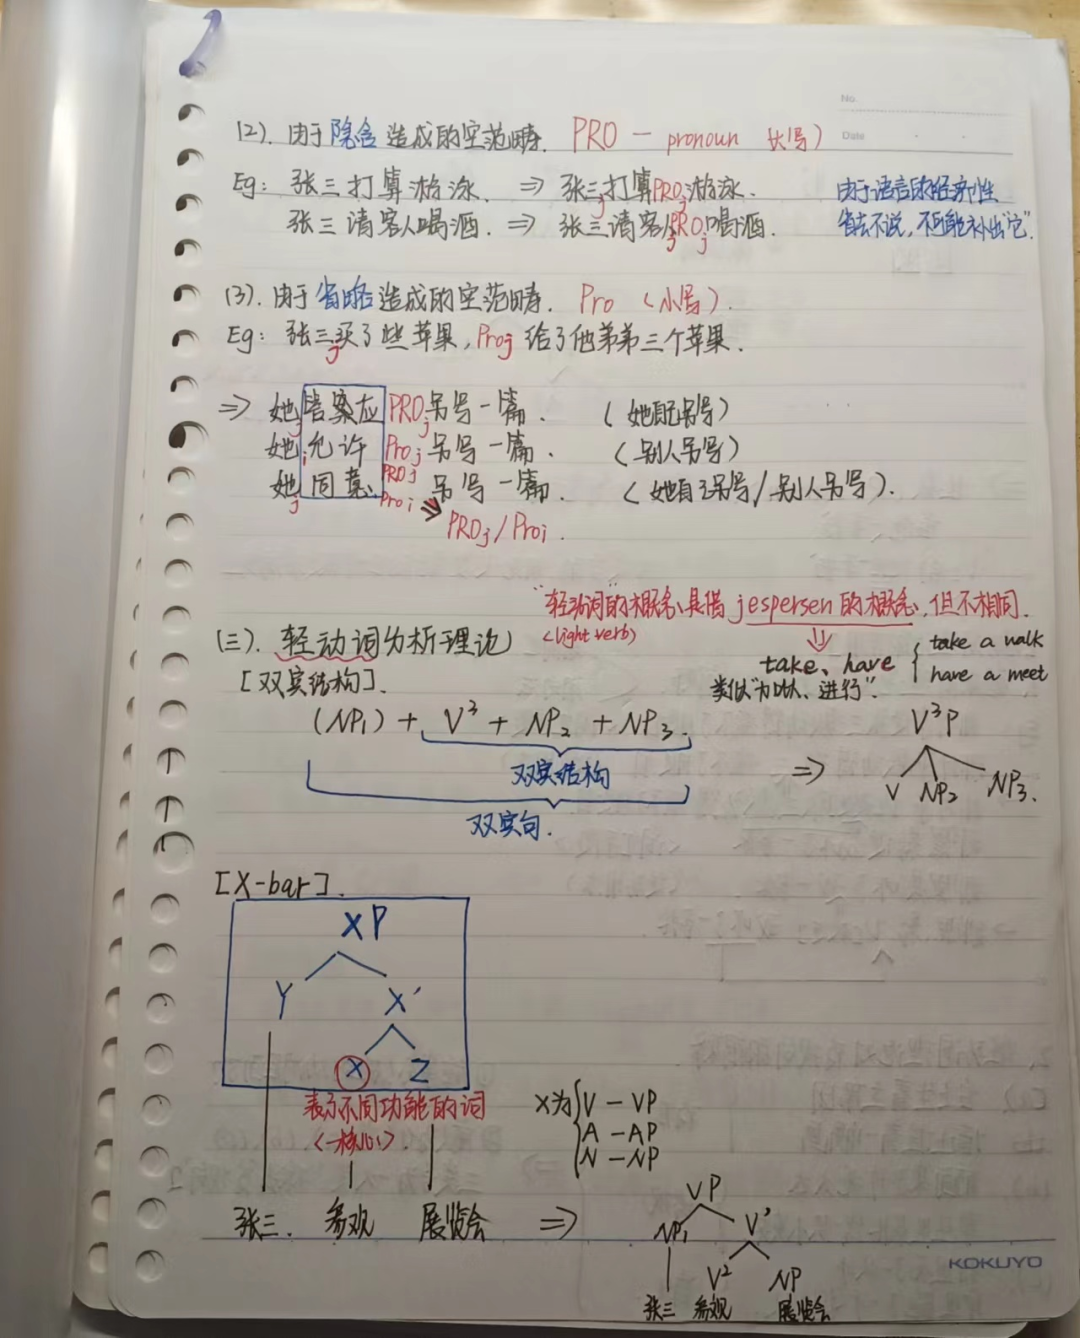 No.
Date
(2). 由于隐含造成的空范畴. PRO — pronoun 大写)
Eg: 张三打算游泳. ⇒ 张三j打算PROj游泳.
张三请客人喝酒. ⇒ 张三请客人jPROj喝酒.
由于语言的经济性
省去不说, 不可能补出"它".
(3). 由于省略造成的空范畴. Pro (小写).
Eg: 张三j买了些苹果, Proj 给了他弟弟三个苹果.
⇒ 她j 答案应 PROj 另写一篇. (她自己另写)
她i 允许 Proj 另写一篇. (别人另写)
她j 同意 PROj Proi 另写一篇. (她自己另写/别人另写).
⇒ PROj/Proi.
"轻动词"的概念是借jespersen的概念, 但不相同.
<light verb)
(三). 轻动词分析理论
⇓
take、have { take a walk
have a meet
类似"加以、进行".
[双宾结构].
(NP1) + V³ + NP2 + NP3.
双宾结构
双宾句.
⇒ V³P
V NP2 NP3.
[X-bar].
XP
Y X'
X Z
表示不同功能的词
(核心).
X为{V — VP
A — AP
N — NP
张三. 参观 展览会 ⇒
VP
NP1 V'
V² NP
张三 参观 展览会
KOKUYO